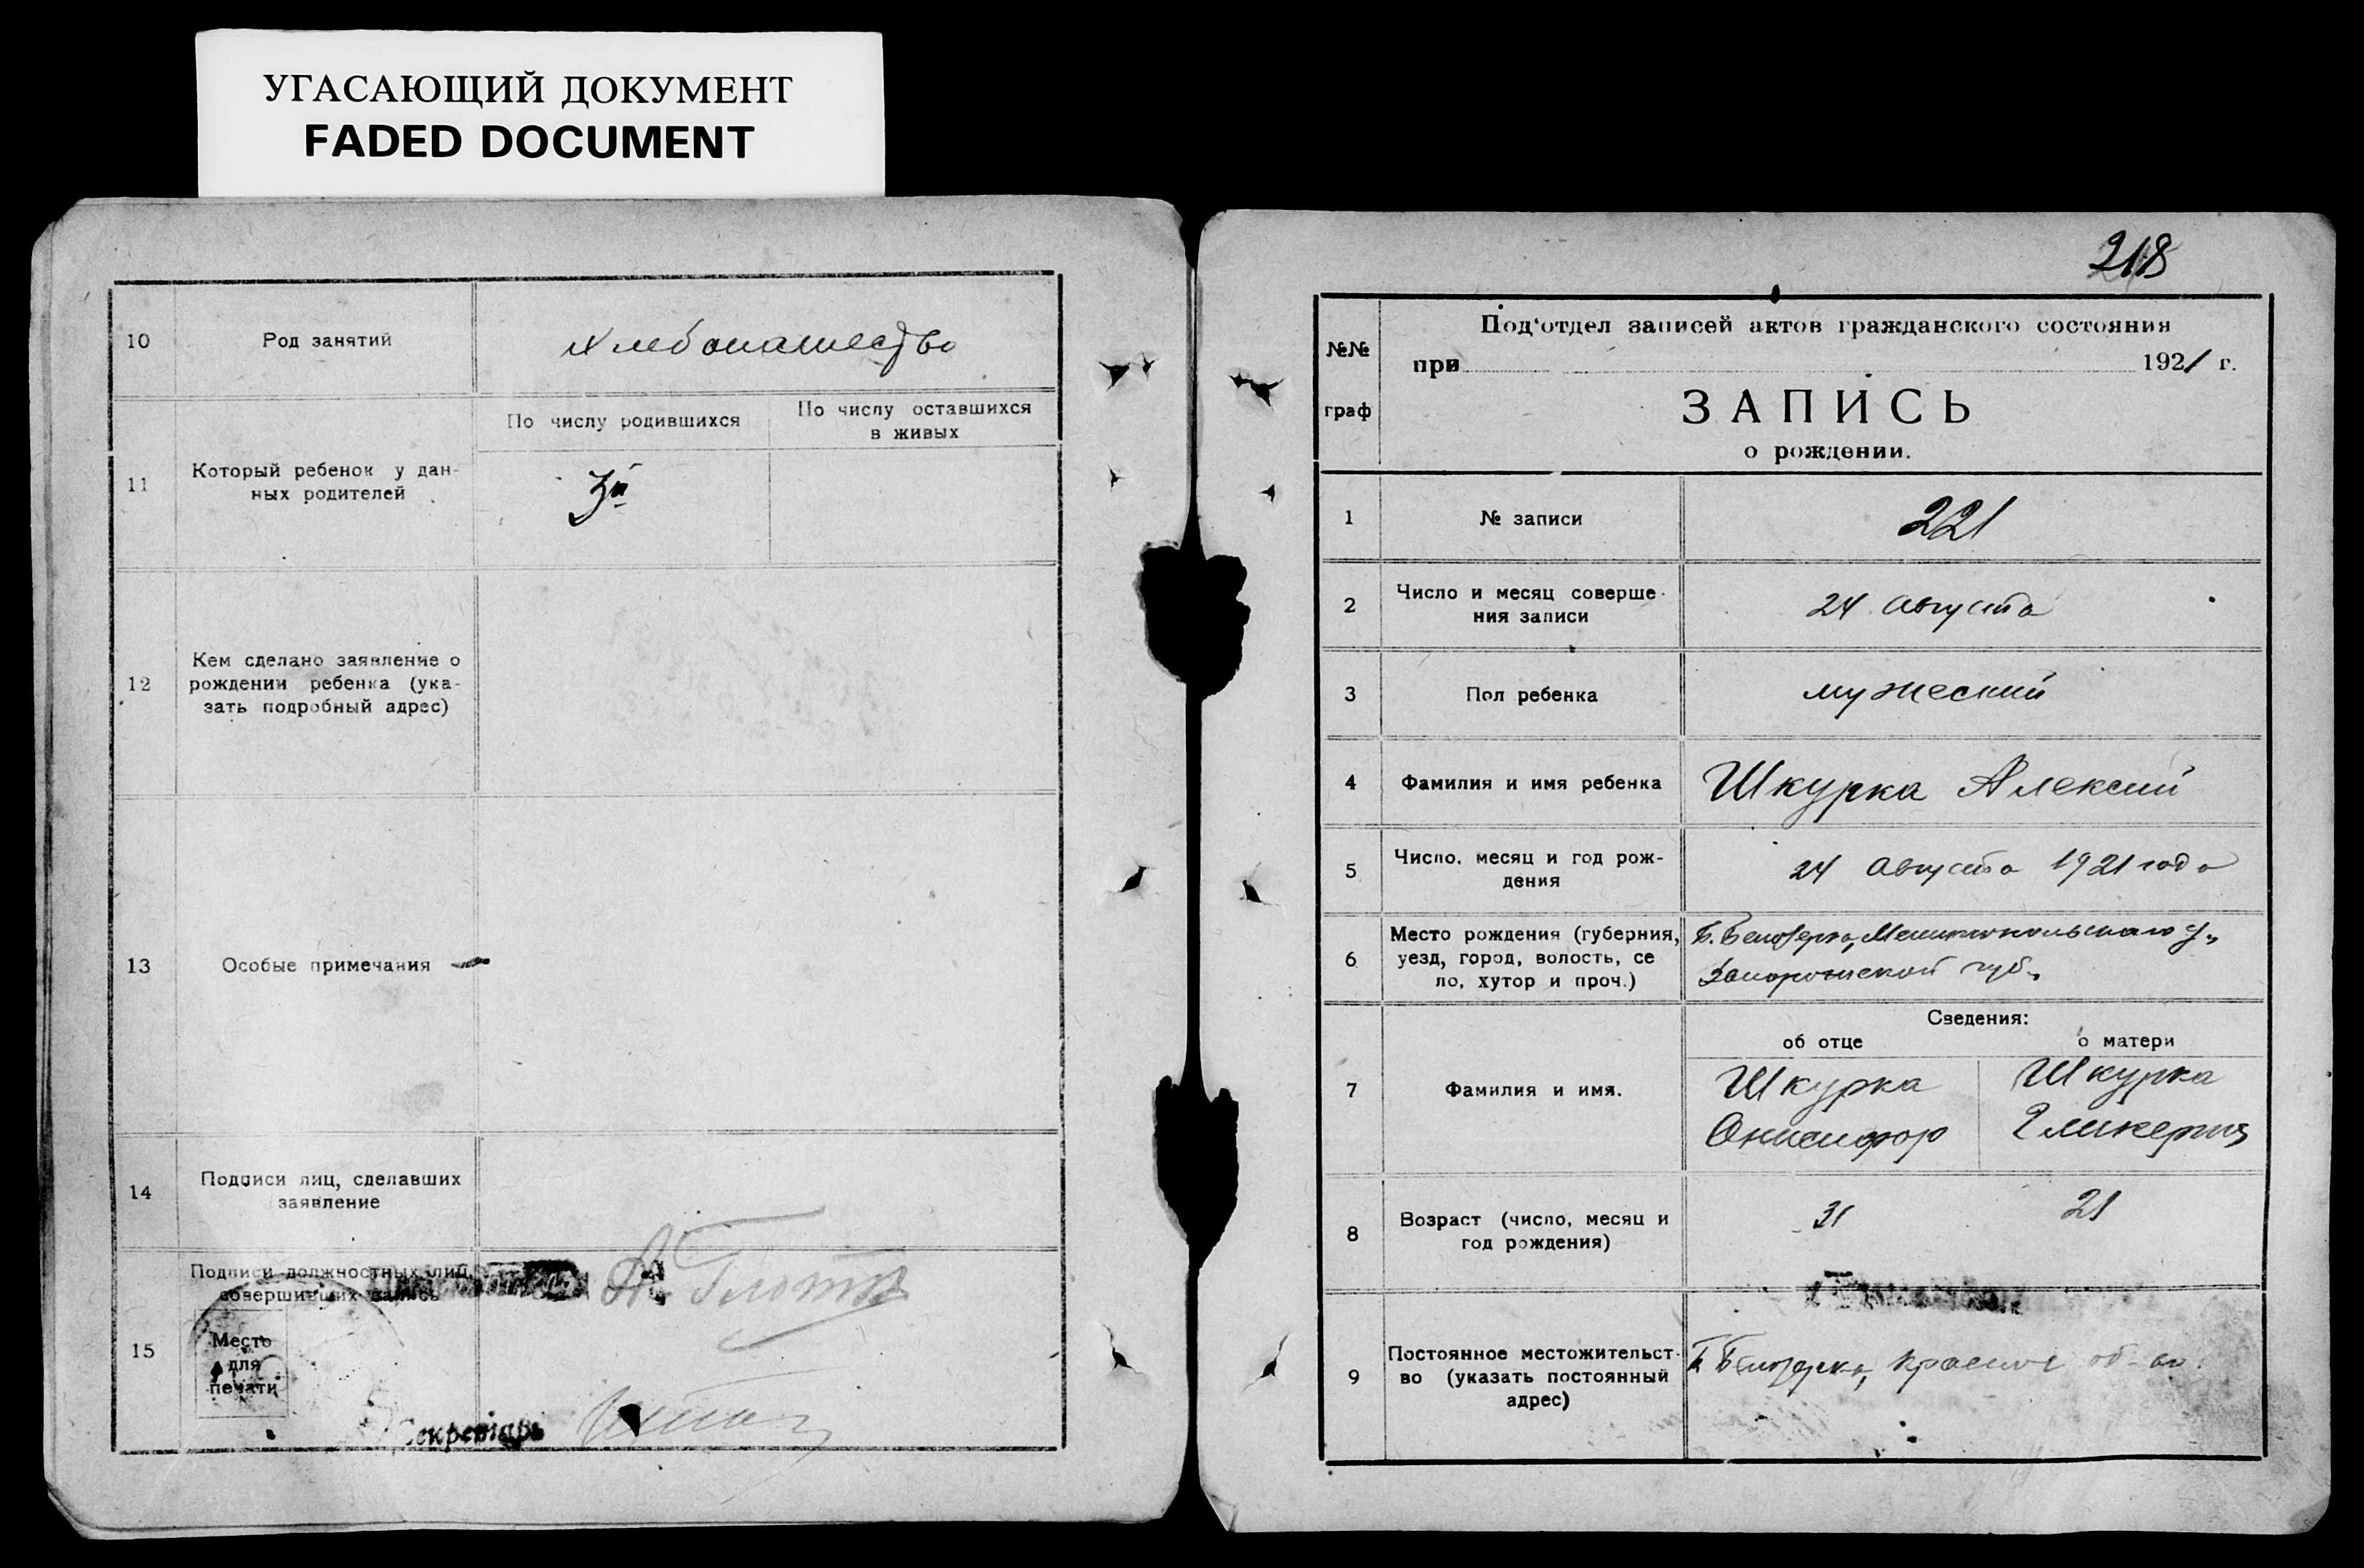 УГАСАЮЩИЙ ДОКУМЕНТ
FADED DOCUMENT
10
Род занятий
Хлебопашество
11
Который ребенок у дан-
ных родителей
По числу родившихся
По числу оставшихся
в живых
3й
12
Кем сделано заявление о
рождении ребенка (ука-
зать подробный адрес)
13
Особые примечания
14
Подписи лиц, сделавших
заявление
15
Подписи должностных лиц,
совершивших запись
А.
Место
для
печати
Секретарь
218
№№
граф
Под'отдел записей актов гражданского состояния
при 1921 г.
ЗАПИСЬ
о рождении.
1
№ записи
221
2
Число и месяц соверше-
ния записи
24 Августа
3
Пол ребенка
мужеский
4
Фамилия и имя ребенка
Шкурка Алексий
5
Число, месяц и год рож-
дения
24 Августа 1921 года
6
Место рождения (губерния,
уезд, город, волость, се
ло, хутор и проч.)
Б. Белозерка, Мелитопольскаго у.,
Запорожской губ.,
Сведения:
об отце
о матери
7
Фамилия и имя.
Шкурка
Онисифор
Шкурка
Гликерия
8
Возраст (число, месяц и
год рождения)
31
21
9
Постоянное местожительст-
во (указать постоянный
адрес)
Б Белозерка, об-во